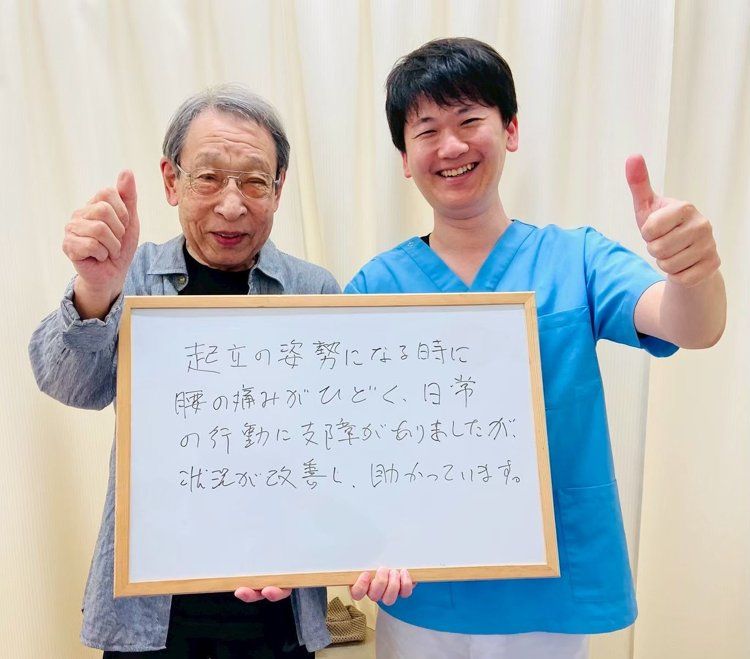 起立の姿勢になる時に
腰の痛みがひどく、日常
の行動に支障がありましたが、
状況が改善し、助かっています。